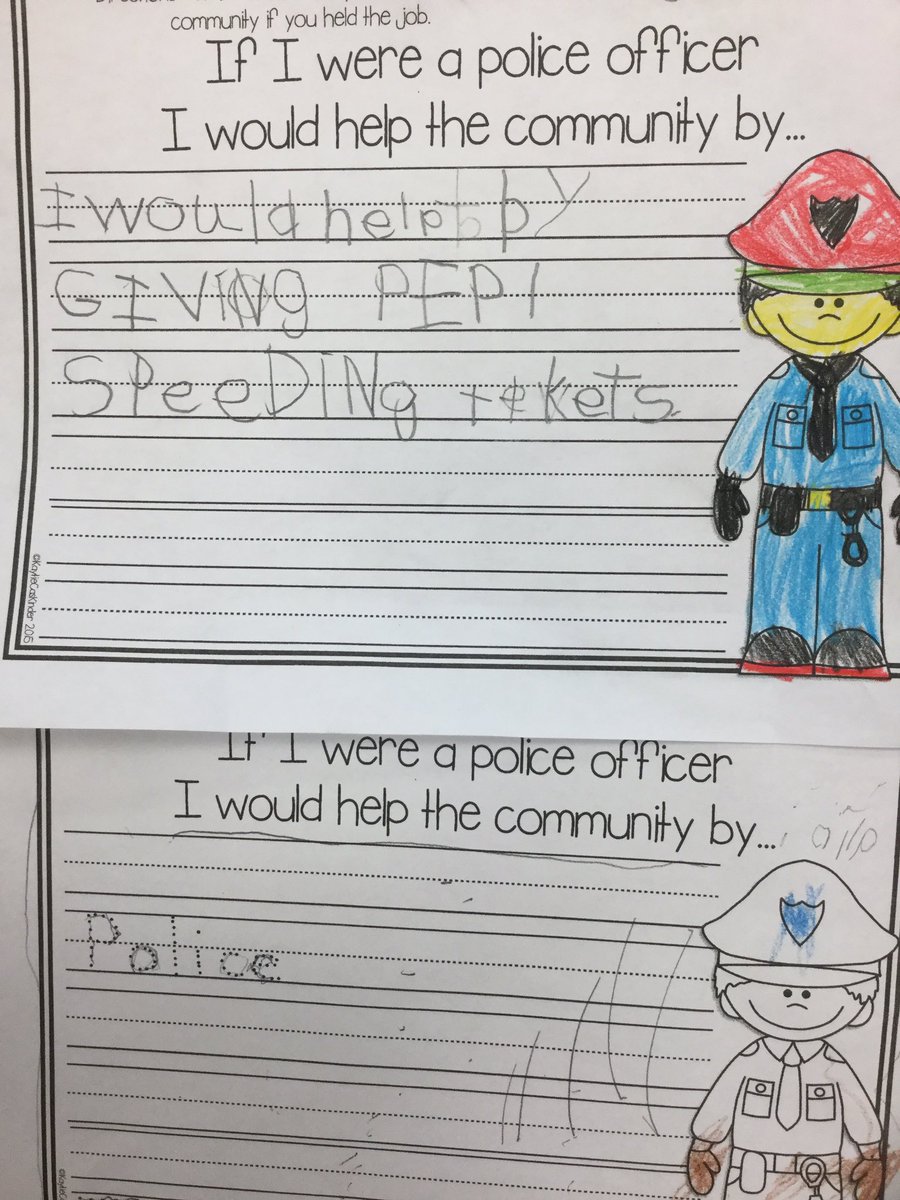 community if you held the job.
If I were a police officer
I would help the community by...
I would help by
GIVING PEPl
SPeeDINg tekets
©KaylieCusKinder 2015
If I were a police officer
I would help the community by...
Police